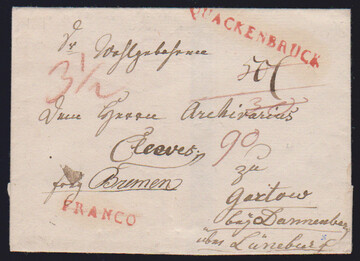 QUACKENBRÜCK
Sr Wohlgebohren
3½
Dem Herrn Archivarius
Cleeves,
90
frey Bremen
zu
FRANCO
Gartow
bey Dannenberg
über Lüneburg